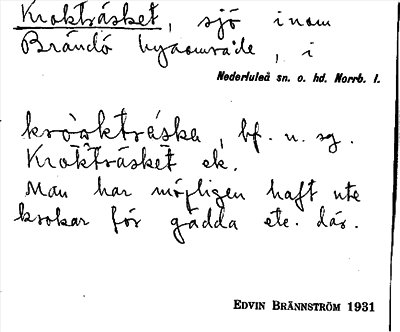 Krokträsket, sjö inom
Brändö byaområde, i
Nederluleå sn. o. hd. Norrb. l.
bf. n. sg.
Krokträsket ek.
Man har möjligen haft ute
krokar för gädda etc. där.
EDVIN BRÄNNSTRÖM 1931